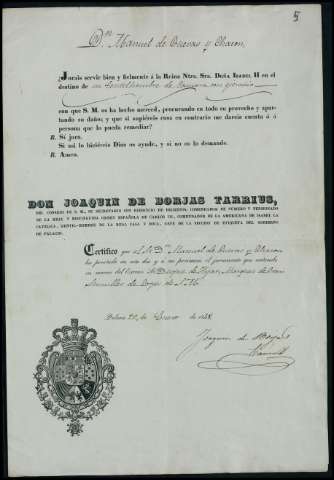 5
Dn. Manuel de Cuevas y Chacon.
¿Jurais servir bien y fielmente á la Reina Ntra. Sra. Doña Isabel II en el
destino de su Gentilhombre de Camara con ejercicio
con que S. M. os ha hecho merced, procurando en todo su provecho y apar-
tando su daño; y que si supiéreis cosa en contrario me dareis cuenta á ó
persona que lo pueda remediar?
R. Sí juro.
Si así lo hiciéreis Dios os ayude, y si no os lo demande.
R. Amen.
DON JOAQUIN DE BORJAS TARRIUS,
DEL CONSEJO DE S. M., SU SECRETARIO CON EJERCICIO DE DECRETOS, COMENDADOR DE NÚMERO Y PENSIONADO
DE LA REAL Y DISTINGUIDA ORDEN ESPAÑOLA DE CARLOS III, COMENDADOR DE LA AMERICANA DE ISABEL LA
CATÓLICA, GENTIL-HOMBRE DE LA REAL CASA Y BOCA, GEFE DE LA SECCION DE ETIQUETA DEL GOBIERNO
DE PALACIO.
Certifico que el Sr. Dn. Manuel de Cuevas y Chacon
ha prestado en este dia y á mi presencia el juramento que antecede
en manos del Excmo. Sr. Duque de Hijar, Marques de
Sumiller de Corps de S. M.
Palacio 20 de Enero de
Joaquin de Borjas
Tarrius